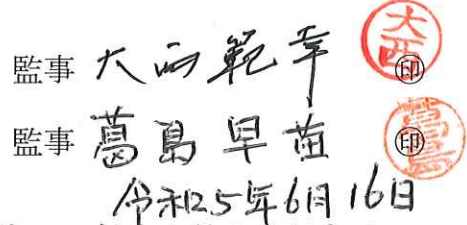 監事 大西範幸 ㊞
監事 葛島早苗 ㊞
令和5年6月16日